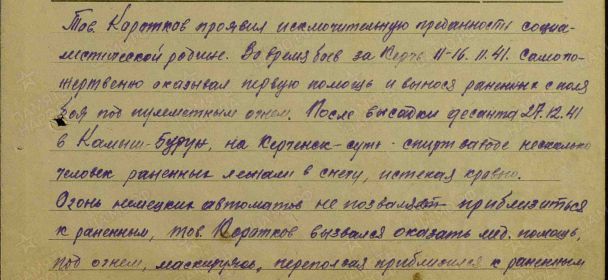 Тов. Коротков проявил исключительную преданность социа-
листической родине. Во время боев за Керчь 11-16.11.41. Самопо-
жертвенно оказывал первую помощь и вынося раненных с поля
боя под пулеметным огнем. После высадки десанта 27.12.41
в Камыш-Бурун, на Керченск-
несколько
человек раненных лежали в снегу, истекая кровью.
Огонь немецких автоматов не позволял приблизиться
к раненным, тов. Коротков вызвался оказать мед. помощь,
под огнем, маскируясь, переползая приблизился к раненным